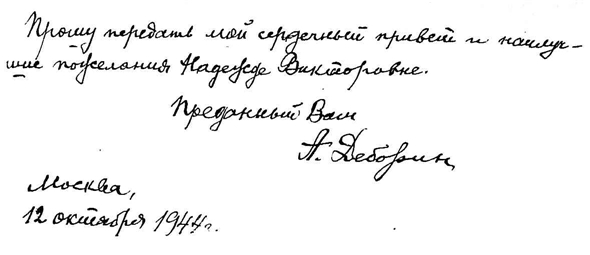 Прошу передать мой сердечный привет и наилуч-
шие пожелания Надежде Викторовне.
Преданный Вам
А. Деборин
Москва,
12 октября 1944 г.